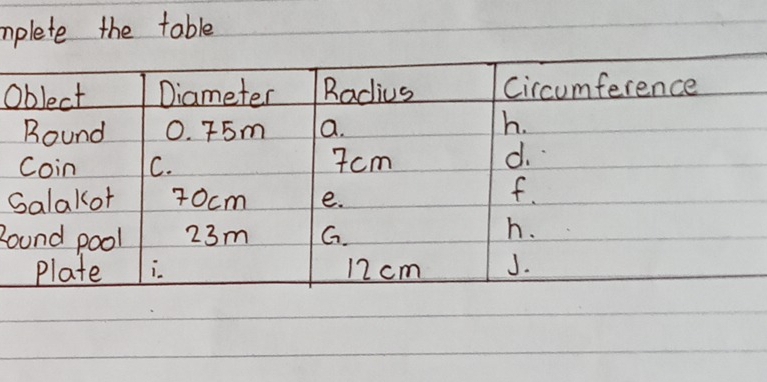 mplete the table
Oblect Diameter Radius Circumference
Round 0.75m a. h.
Coin C. 7cm d.
Salakot 70cm e. f.
Round pool 23m G. h.
Plate i. 12cm J.